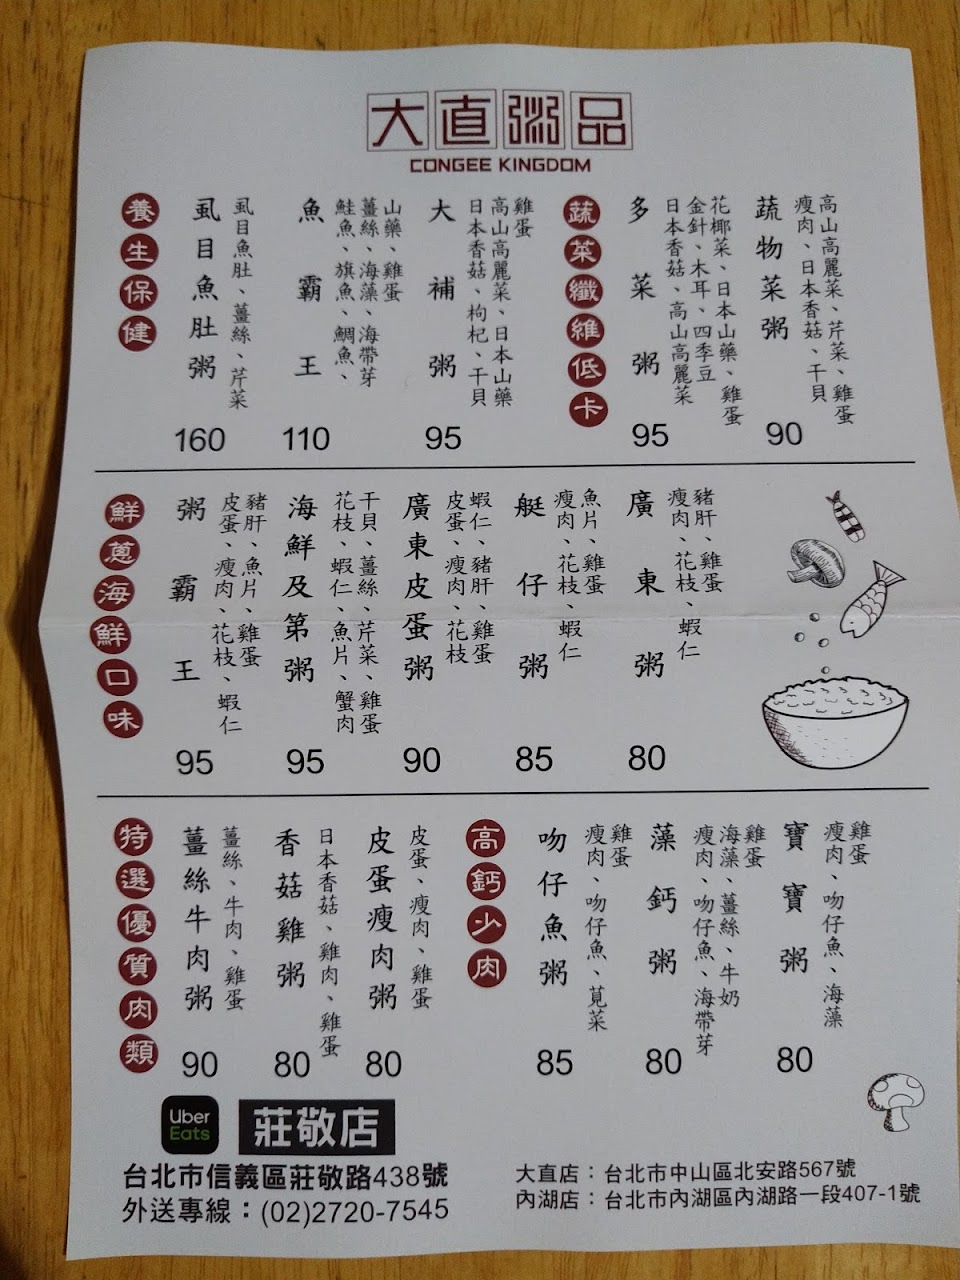 大直粥品
CONGEE KINGDOM
養生保健
虱目魚肚粥
虱目魚肚、薑絲、芹菜
160
魚霸王
鮭魚、旗魚、鯛魚、
薑絲、海藻、海帶芽
山藥、雞蛋
110
大補粥
日本香菇、枸杞、干貝
高山高麗菜、日本山藥
雞蛋
95
蔬菜纖維低卡
多菜粥
日本香菇、高山高麗菜
金針、木耳、四季豆
花椰菜、日本山藥、雞蛋
95
蔬物菜粥
瘦肉、日本香菇、干貝
高山高麗菜、芹菜、雞蛋
90
鮮蔥海鮮口味
粥霸王
皮蛋、瘦肉、花枝、蝦仁
豬肝、魚片、雞蛋
95
海鮮及第粥
花枝、蝦仁、魚片、蟹肉
干貝、薑絲、芹菜、雞蛋
95
廣東皮蛋粥
皮蛋、瘦肉、花枝
蝦仁、豬肝、雞蛋
90
艇仔粥
瘦肉、花枝、蝦仁
魚片、雞蛋
85
廣東粥
瘦肉、花枝、蝦仁
豬肝、雞蛋
80
特選優質肉類
薑絲牛肉粥
薑絲、牛肉、雞蛋
90
香菇雞粥
日本香菇、雞肉、雞蛋
80
皮蛋瘦肉粥
皮蛋、瘦肉、雞蛋
80
高鈣少肉
吻仔魚粥
瘦肉、吻仔魚、莧菜
雞蛋
85
藻鈣粥
瘦肉、吻仔魚、海帶芽
海藻、薑絲、牛奶
雞蛋
80
寶寶粥
瘦肉、吻仔魚、海藻
雞蛋
80
Uber
Eats
莊敬店
台北市信義區莊敬路438號
外送專線：(02)2720-7545
大直店：台北市中山區北安路567號
內湖店：台北市內湖區內湖路一段407-1號